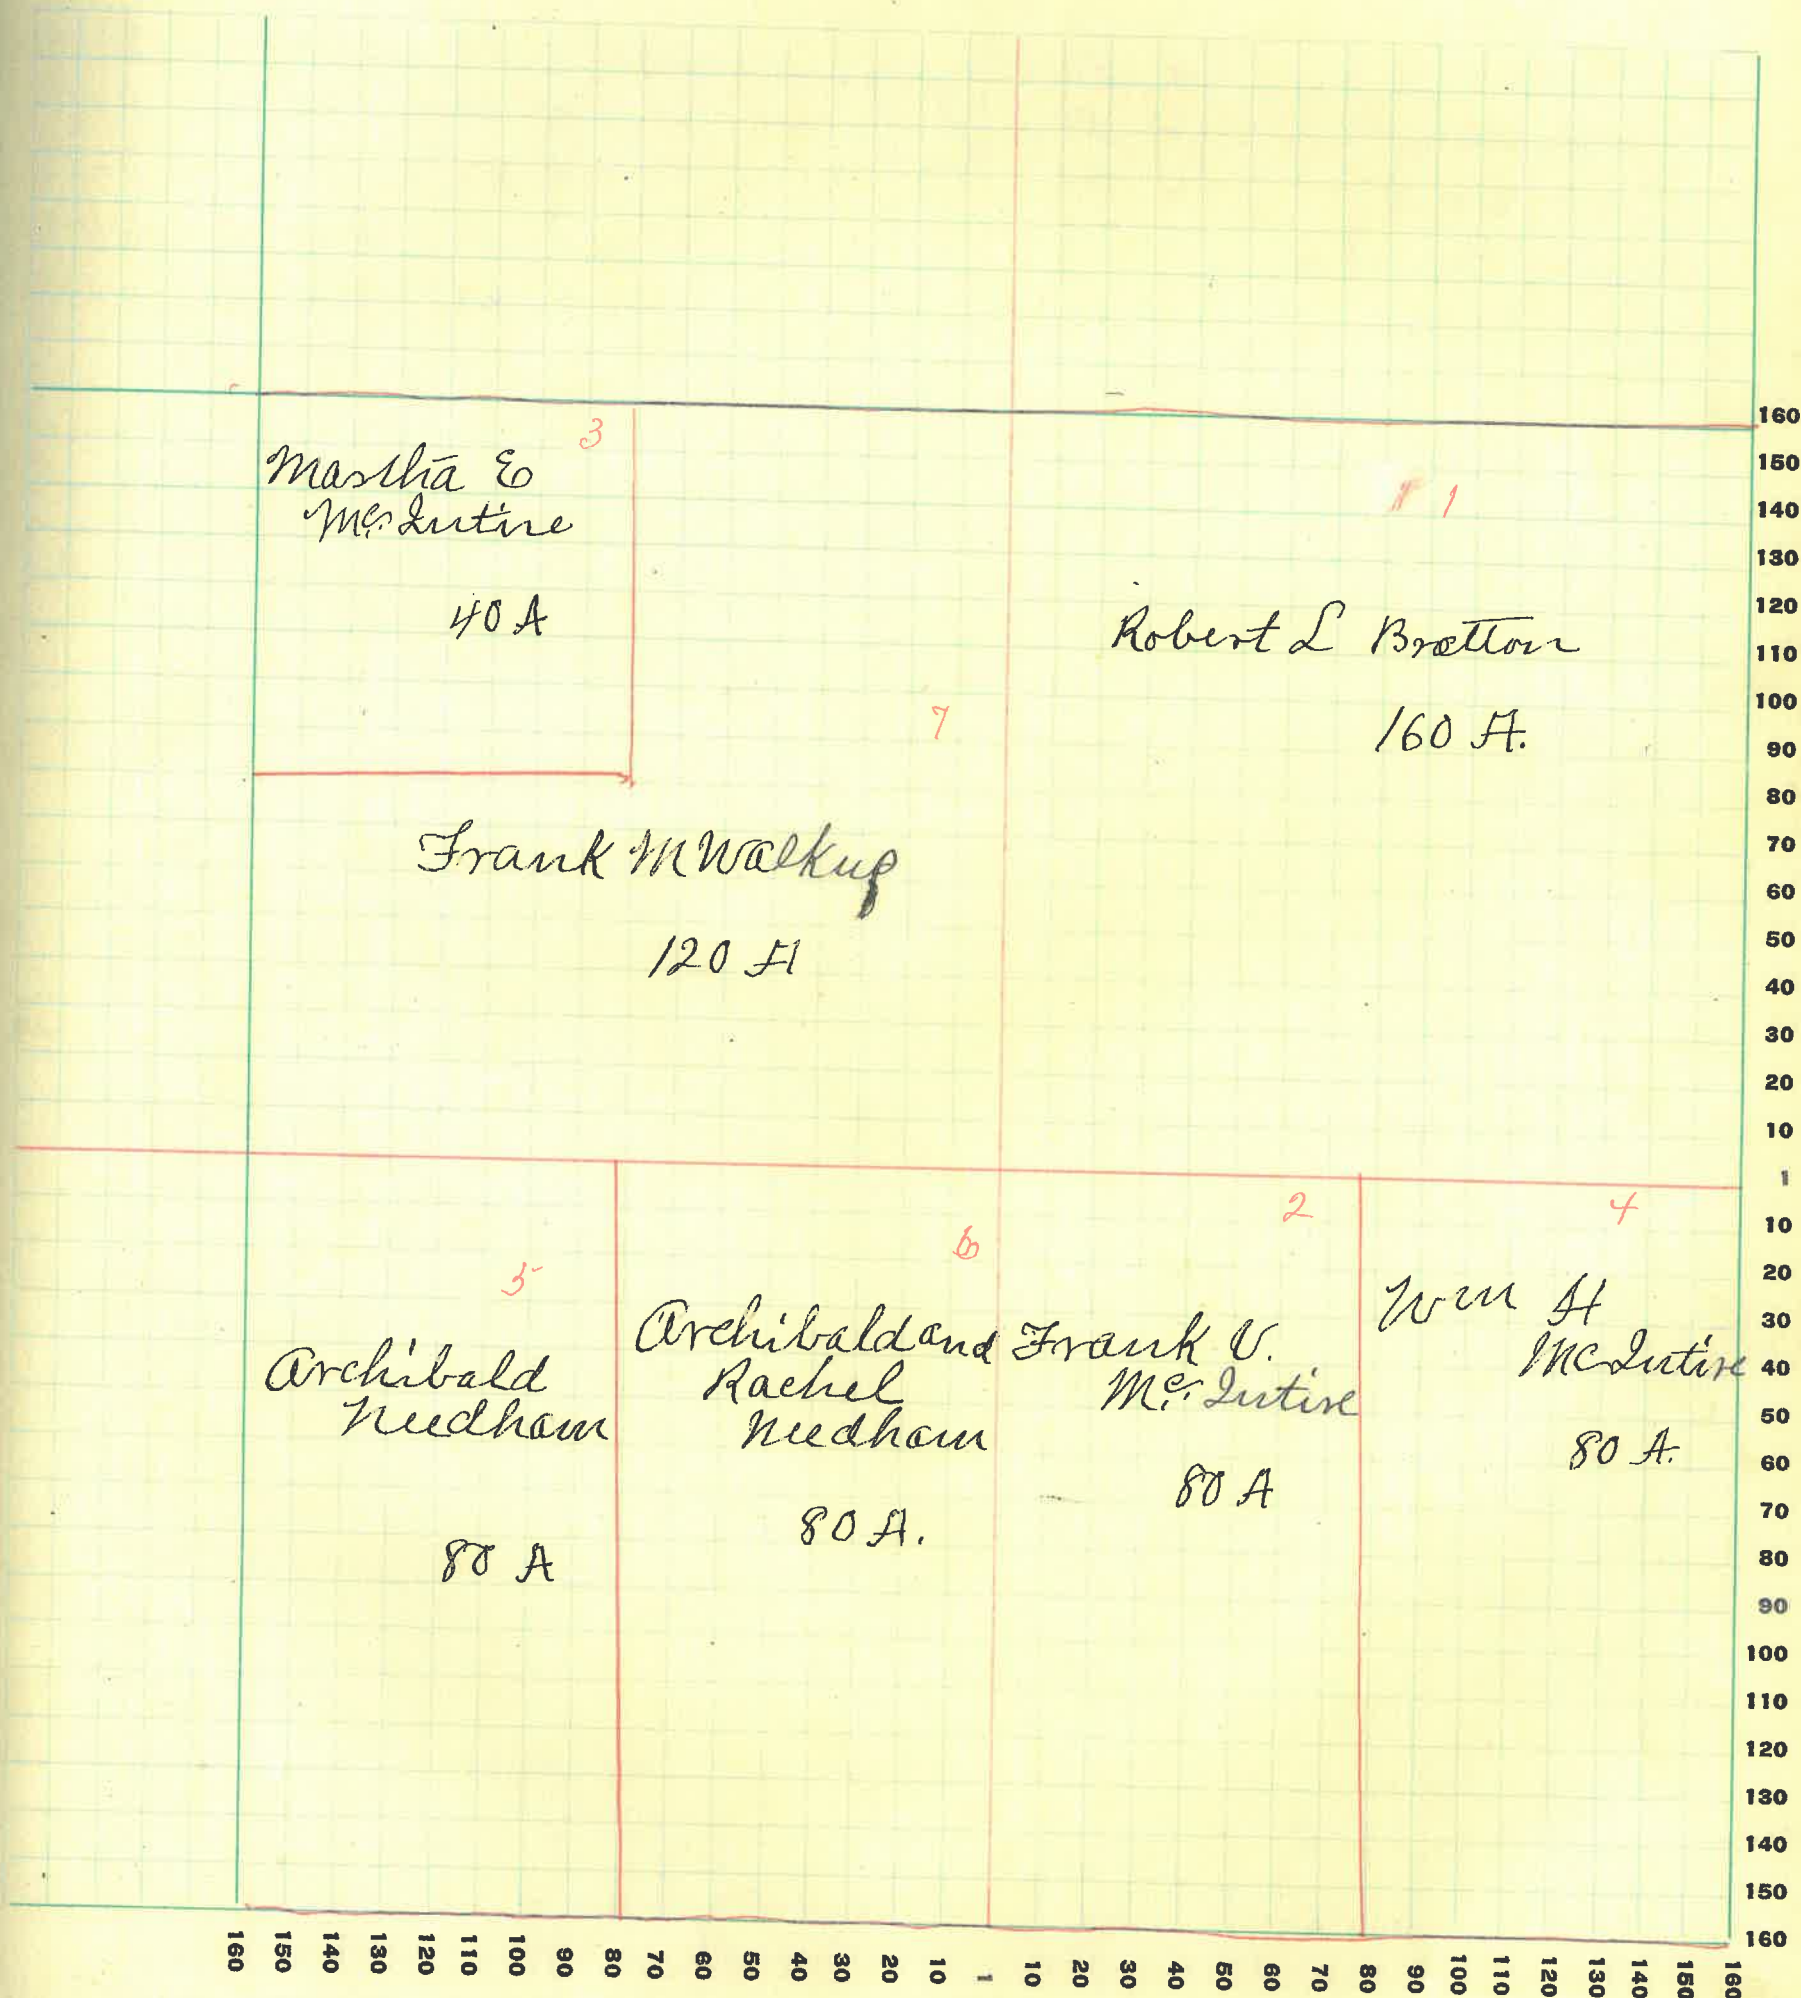 3
Martha E
Mc. Intire
40 A
1
Robert L Bratton
160 A.
7
Frank M Walkup
120 A
5
Archibald
Needham
80 A
6
Archibald and
Rachel
Needham
80 A.
2
Frank V.
Mc. Intire
80 A
4
Wm H
McIntire
80 A.
160
150
140
130
120
110
100
90
80
70
60
50
40
30
20
10
1
10
20
30
40
50
60
70
80
90
100
110
120
130
140
150
160
160 150 140 130 120 110 100 90 80 70 60 50 40 30 20 10 1 10 20 30 40 50 60 70 80 90 100 110 120 130 140 150 160